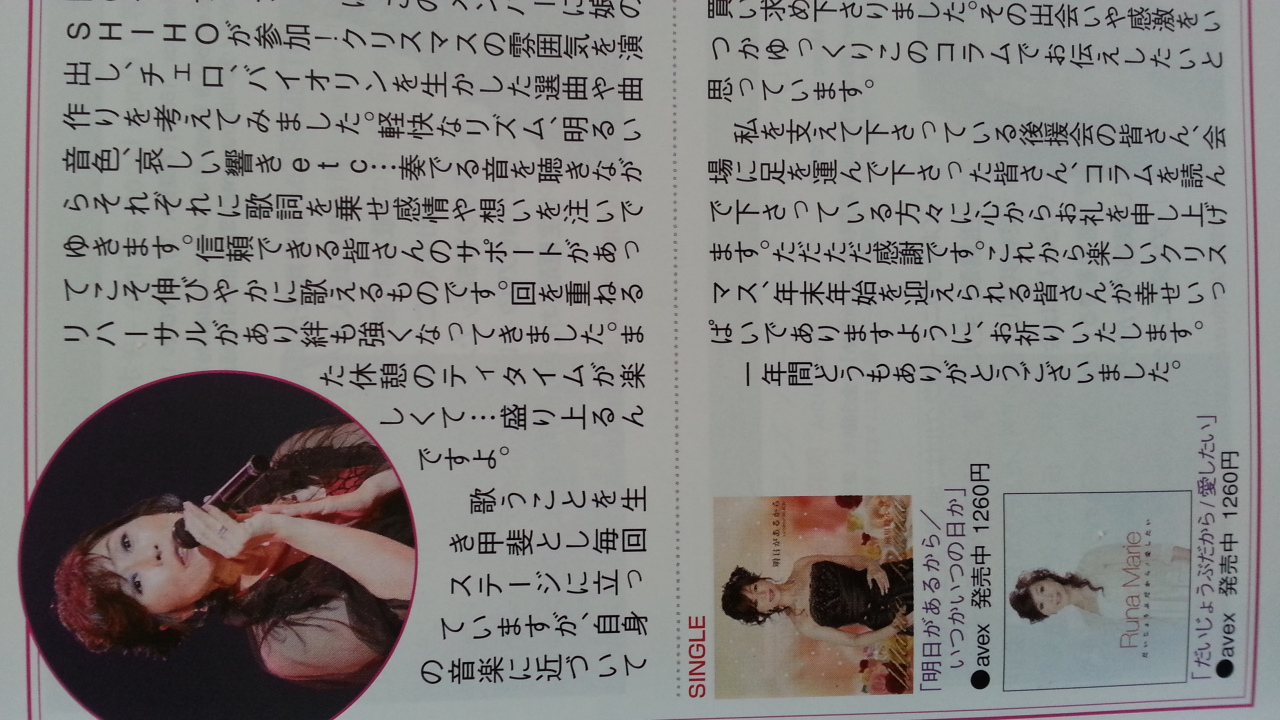 このメンバーに娘の
SHIHOが参加!クリスマスの雰囲気を演
出し、チェロ、バイオリンを生かした選曲や曲
作りを考えてみました。軽快なリズム、明るい
音色、哀しい響きetc…奏でる音を聴きなが
らそれぞれに歌詞を乗せ感情や想いを注いで
ゆきます。信頼できる皆さんのサポートがあっ
てこそ伸びやかに歌えるものです。回を重ねる
リハーサルがあり絆も強くなってきました。ま
た休憩のティタイムが楽
しくて…盛り上るん
ですよ。
歌うことを生
き甲斐とし毎回
ステージに立っ
ていますが、自身
の音楽に近づいて
買い求め下さりました。その出会いや感激をい
つかゆっくりこのコラムでお伝えしたいと
思っています。
私を支えて下さっている後援会の皆さん、会
場に足を運んで下さった皆さん、コラムを読ん
で下さっている方々に心からお礼を申し上げ
ます。ただただ感謝です。これから楽しいクリス
マス、年末年始を迎えられる皆さんが幸せいっ
ぱいでありますように、お祈りいたします。
一年間どうもありがとうございました。
SINGLE
明日があるから
「明日があるから/
いつかいつの日か」
●avex 発売中 1260円
Runa Marie
だいじょうぶだから/愛したい
「だいじょうぶだから/愛したい」
●avex 発売中 1260円